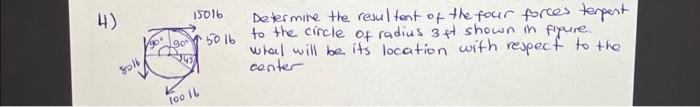 4)
150lb
Determine the resultent of the four forces tengent
90° 90° 50 lb to the circle of radius 3 ft shown in figure.
45
80lb
what will be its location with respect to the
center
100 lb